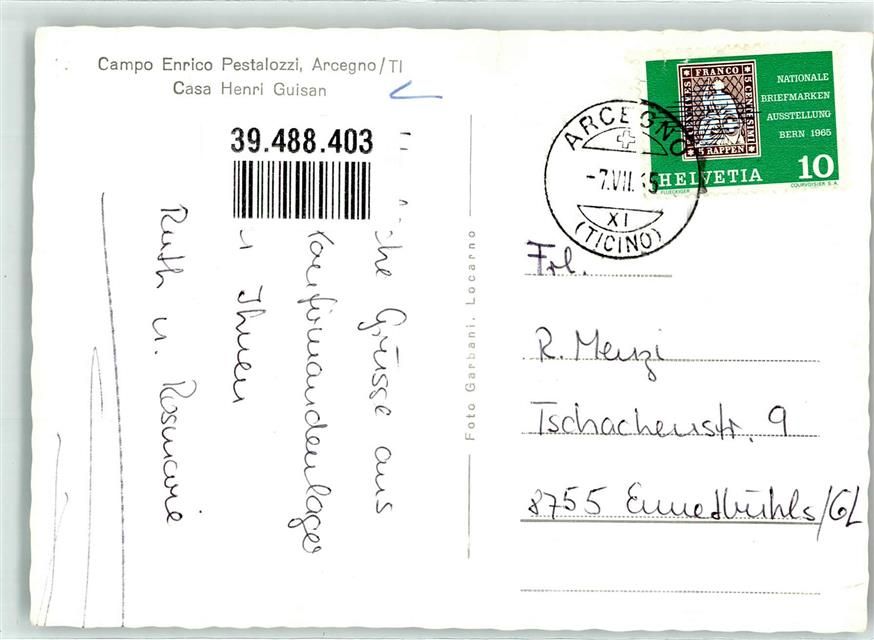 Campo Enrico Pestalozzi, Arcegno/TI
Casa Henri Guisan
39.488.403
Grüsse aus
Konfirmandenlager
Ihnen
Ruth u. Rosmarie
Foto Garbani, Locarno
FRANCO
5 CENTESIMI
5 RAPPEN
NATIONALE
BRIEFMARKEN
AUSSTELLUNG
BERN 1965
HELVETIA 10
FLUECKIGER
COURVOISIER S.A.
ARCEGNO
-7.VII.65
XI
(TICINO)
Frl.
R. Menzi
Tschachenstr. 9
8755 Ennetbühls/GL